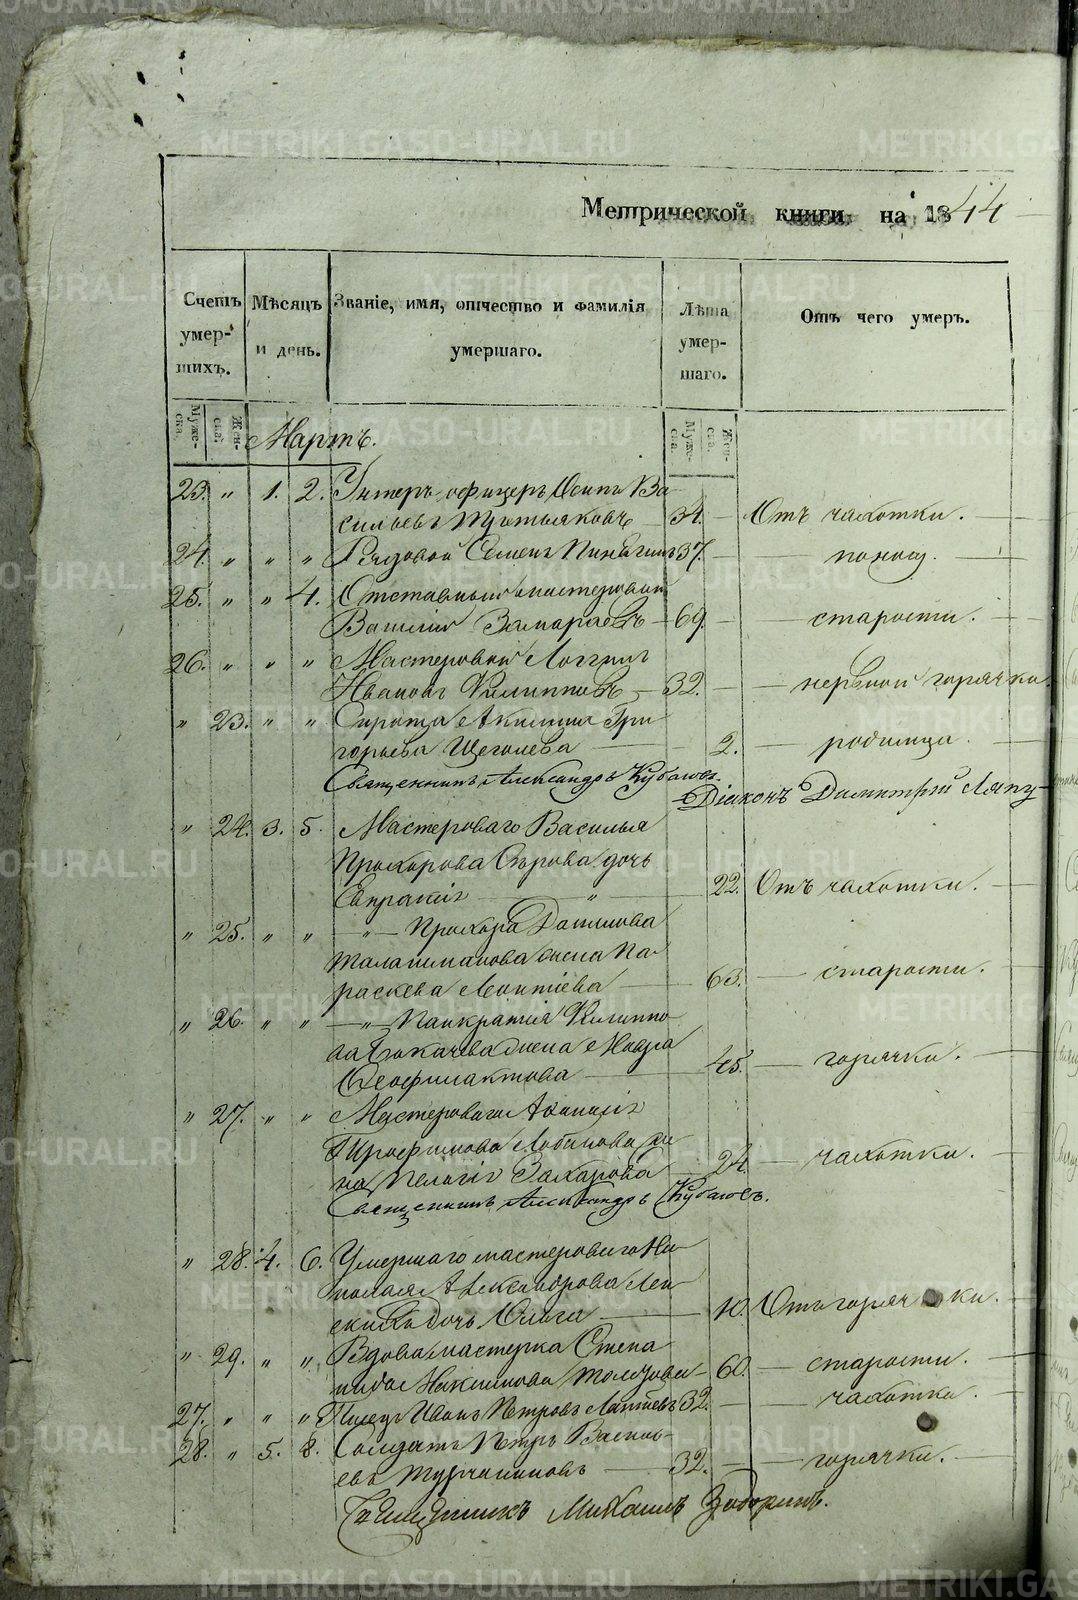 Метрической книги на 1844
Счетъ умер-шихъ. Мѣсяцъ и день. Званіе, имя, отчество и фамилія умершаго. Лѣта умер-шаго. Отъ чего умеръ.
Муже-ска. Жен-ска. Муже-ска. Жен-ска.
Мартъ.
23. „ 1. 2. Унтеръ офицеръ Осипъ Ва-
сильевъ Третьяковъ — 34. — Отъ чахотки.
24. „ „ „ Рядовой Семенъ Пинягинъ 37. — поносу.
25. „ „ 4. Отставный мастеровой
Василій Замараевъ — 69. — старости.
26. „ „ „ Мастеровой Логгинъ
Ивановъ Филипповъ — 32. — нервной горячки.
„ 23. „ „ Сирота Акилина Гри-
горьева Щеголева — 2. — родимца.
Священникъ Александръ
Діаконъ Димитрій Ляпу-
„ 24. 3. 5. Мастероваго Василья
Прохорова дочь
Евпраксія — „ — 22. Отъ чахотки.
„ 25. „ „ — „ — Прохора Данилова
жена Па-
раскева Леонтіева — 63. — старости.
„ 26. „ „ — „ — Панкратія Филиппо-
ва жена Мавра
Феофилактова — 45. — горячки.
„ 27. „ „ Мастероваго Афанасія
Трофимова Лобанова же-
на Пелагія Захарова — 24. — чахотки.
Священникъ Александръ
„ 28. 4. 6. Умершаго мастероваго Ни-
колая Александрова
дочь Ольга — 10. Отъ горячки.
„ 29. „ „ Вдова мастерка Степа-
нида Максимова — 60. — старости.
27. „ „ „ Иванъ Петровъ Лаптевъ 32. — чахотки.
28. „ 5. 8. Солдатъ Петръ Василь-
евъ Турчаниновъ — 32. — горячки.
Священникъ Михаилъ Задоринъ.